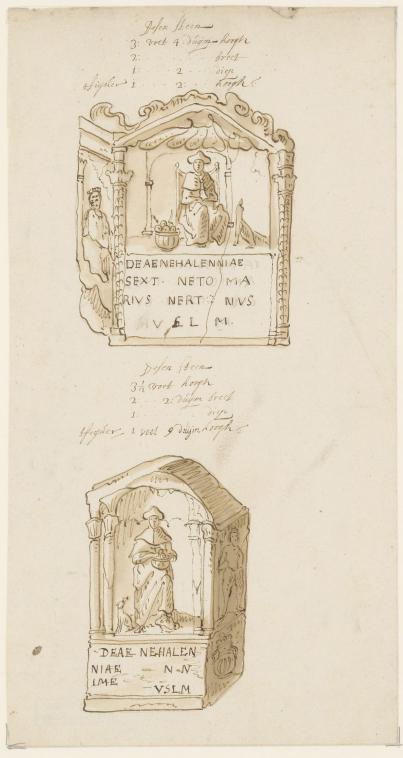 Desen steen
3 voet 4 duijm hoogh
2 breet
1 2 diep
1 2 hoogh
DEAE NEHALENNIAE
SEXT · NETO MA
RIVS NERT NIVS
V S L M
Desen steen
3½ voet hoogh
2 2 duijm breet
1 diep
1 voet 9 duijm hoogh
DEAE NEHALEN
NIAE N·N
IME
VSLM